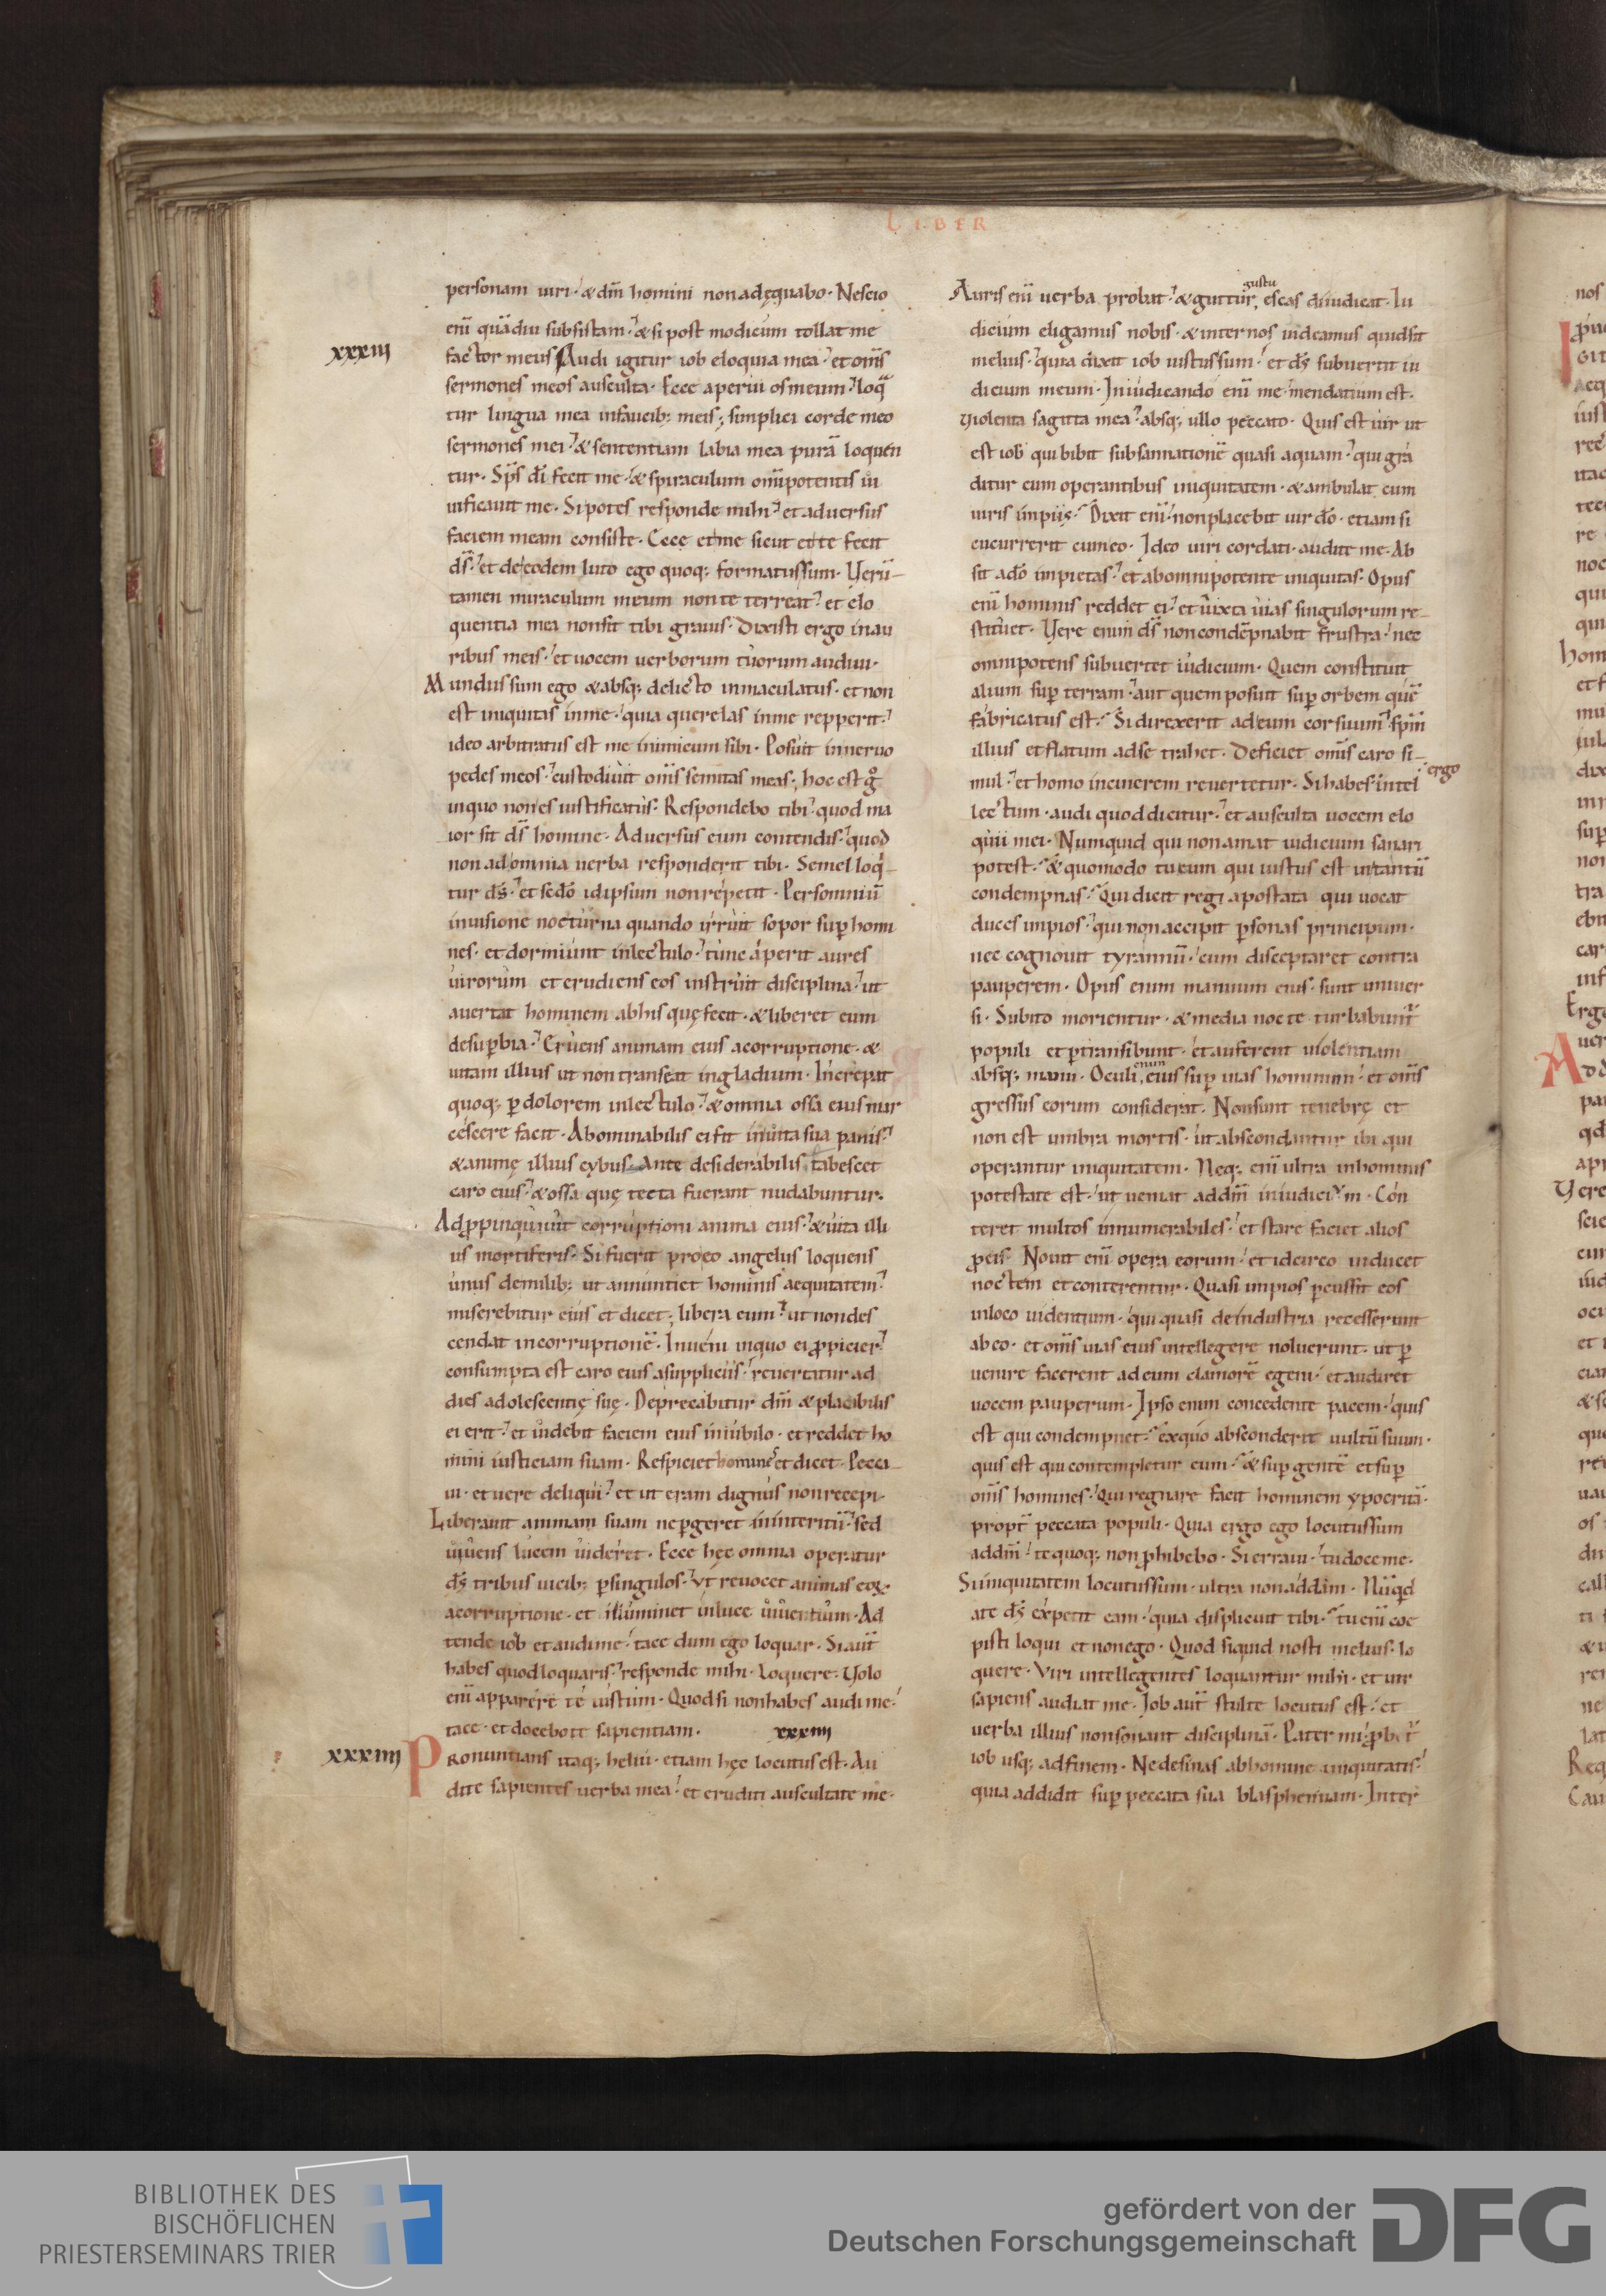 LIBER
personam uiri· & dm̄ homini non adęquabo· Nescio
eni̅ quādiu subsistam· & si post modicum tollat me
xxxiii factor meus Audi igitur iob eloquia mea· et om̄s
sermones meos ausculta· Ecce aperui os meum· loq̄
tur lingua mea in faucib; meis; simplici corde meo
sermones mei· & sententiam labia mea purā loquen
tur· Sp̄s d̄i fecit me· & spiraculum om̄ipotentis ui
uificauit me· Si potes responde mihi· et aduersus
faciem meam consiste· Ecce et me sicut et te fecit
d̄s· et de eodem luto ego quoq; formatus sum· Verū
tamen miraculum meum non te terreat· et elo
quentia mea non sit tibi grauis· Dixisti ergo in au
ribus meis· et uocem uerborum tuorum audiui·
Mundus sum ego & absq; delicto inmaculatus· et non
est iniquitas in me· quia querelas in me repperit·
ideo arbitratus est me inimicum sibi· Posuit in neruo
pedes meos· custodiuit om̄s semitas meas; hoc est gͦ
in quo non es iustificatus· Respondebo tibi· quod ma
ior sit d̄s homine· Aduersus eum contendis· quod
non ad omnia uerba responderit tibi· Semel loq
tur d̄s· et sc̄do id ipsum non repetit· Per somniū
in uisione nocturna quando irruit sopor sup̱ homi
nes· et dormiunt in lectulo· tunc aperit aures
uirorum et erudiens eos instruit disciplina· ut
auertat hominem ab his quę fecit· & liberet eum
de sup̱bia· Eruens animam eius a corruptione· &
uitam illius ut non transeat in gladium· Increpat
quoq; p̱ dolorem in lectulo· & omnia ossa eius mar
cescere facit· Abominabilis ei fit in uita sua panis·
& animę illius cybus· Ante desiderabilis tabescet
caro eius· & ossa quę tecta fuerant nudabuntur·
Adp̱pinquauit corruptioni anima eius· & uita illi
us mortiferis· Si fuerit pro eo angelus loquens
unus de milib; ut annuntiet hominis aequitatem·
miserebitur eius et dicet; libera eum· ut non des
cendat in corruptionē· Inueni in quo ei p̱picier·
consumpta est caro eius a suppliciis· reuertatur ad
dies adolescentię suę· Deprecabitur dm̄ & placabilis
ei erit· et uidebit faciem eius in iubilo· et reddet ho
mini iusticiam suam· Respiciet hominē et dicet· Pecca
ui· et uere deliqui· et ut eram dignus non recepi·
Liberauit animam suam ne p̱geret in interitū· sed
uiuens lucem uideret· Ecce hęc omnia operatur
d̄s tribus uicib; p̱ singulos· ut reuocet animas eoꝝ
a corruptione· et illuminet in luce uiuentium· Ad
tende iob et audi me· tace dum ego loquar· Si aut̄
habes quod loquaris· responde mihi· loquere· Volo
eni̅ apparere te iustum· Quod si non habes audi me·
tace· et docebo te sapientiam· xxxiiii
xxxiiii Pronuntians itaq; heliu· etiam hęc locutus est· Au
dite sapientes uerba mea· et eruditi auscultate me·
gustu
Auris eni̅ uerba probat· & guttur, escas diiudicat· Iu
dicium eligamus nobis· & inter nos uideamus quid sit
melius· quia dixit iob iustus sum· et d̄s subuertit iu
dicium meum· In iudicando eni̅ me· mendatium est·
Violenta sagitta mea· absq; ullo peccato· Quis est uir ut
est iob qui bibit subsannationē quasi aquam· qui gra
ditur cum operantibus iniquitatem· & ambulat cum
uiris impiis· Dixit eni̅· non placebit uir d̄o· etiam si
cucurrerit cum eo· Ideo uiri cordati· audite me· Ab
sit a d̄o impietas· et ab omnipotente iniquitas· Opus
eni̅ hominis reddet ei· et iuxta uias singulorum re
stituet· Vere enim d̄s non condēpnabit frustra· nec
omnipotens subuertet iudicium· Quem constituit
alium sup̱ terram· aut quem posuit sup̱ orbem quē
fabricatus est· Si direxerit ad eum cor suum· sp̄m
illius et flatum ad se trahet· Deficiet om̄is caro si
mul· et homo in cinerem reuertetur· Si habes ergo intel
lectum· audi quod dicitur· et ausculta uocem elo
quii mei· Numquid qui non amat iudicium sanari
potest· & quomodo tu eum qui iustus est in tantū
condempnas· Qui dicit regi apostata qui uocat
duces impios· qui non accipit p̱sonas principum·
nec cognouit tyrannū· cum disceptaret contra
pauperem· Opus enim manuum eius· sunt uniuer
si· Subito morientur· & media nocte turbabunt̄
populi et p̱transibunt· et auferent uiolentiam
absq; manu· Oculi, enim eius sup̱ uias hominum· et om̄s
gressus eorum considerat· Non sunt tenebrę et
non est umbra mortis· ut abscondantur ibi qui
operantur iniquitatem· Neq; eni̅ ultra in hominis
potestate est· ut ueniat ad dm̄ in iudicium· Con
teret multos innumerabiles· et stare faciet alios
p̱ eis· Nouit eni̅ opera eorum· et idcirco inducet
noctem et conterentur· Quasi impios p̱cussit eos
in loco uidentium· qui quasi de industria recesserunt
ab eo· et om̄s uias eius intellegere noluerunt· ut p̱
uenire facerent ad eum clamorē egeni· et audiret
uocem pauperum· Ipso enim concedente pacem· quis
est qui condempnet· ex quo absconderit uultū suum·
quis est qui contempletur eum· & sup̱ gentē et sup̱
om̄s homines· Qui regnare facit hominem ypocritā·
propt̄ peccata populi· Quia ergo ego locutus sum
ad dm̄· te quoq; non p̱hibebo· Si erraui· tu doce me·
Si iniquitatem locutus sum· ultra non addam· Nūq̄d
a te d̄s expetit eam· quia displicuit tibi· tu eni̅ coe
pisti loqui et non ego· Quod si quid nosti melius· lo
quere· Viri intellegentes loquantur mihi· et uir
sapiens audiat me· Iob aut̄ stulte locutus est· et
uerba illius non sonant disciplinā· Pater mi· p̱bet̄
iob usq; ad finem· Ne desinas ab homine iniquitatis·
quia addidit sup̱ peccata sua blasphemiam· Inter
BIBLIOTHEK DES
BISCHÖFLICHEN
PRIESTERSEMINARS TRIER
gefördert von der
Deutschen Forschungsgemeinschaft
DFG